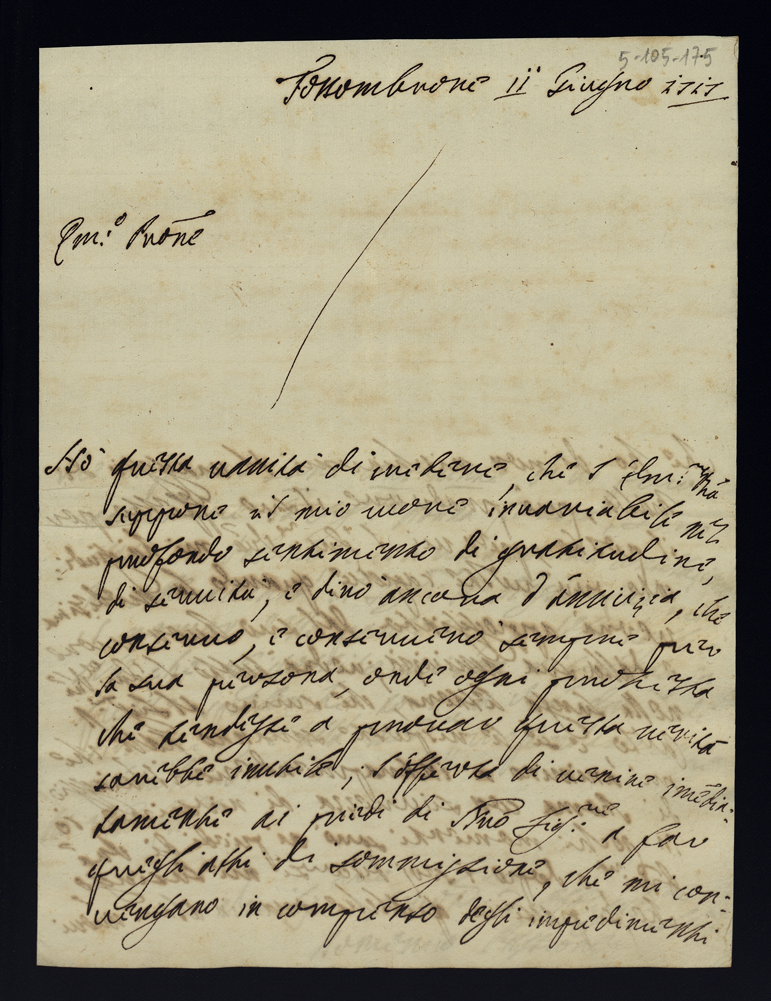 5-105-175
Fossombrone 11 Giugno
Em.o Prōne
Hò questa vanità di credere, che l'Em.
suppone il mio cuore invariabile nel
profondo sentimento di gratitudine,
di servitù, e dirò ancora d'amicizia, che
conservo, e conserverò sempre per
la sua persona, onde ogni protesta
che tendesse a provar questa verità
sarebbe inutile; l'offerta di venire imedia-
tamente ai piedi di Nro Sig.re a far
quegli atti di sommissione, che mi con-
vengano in compenso degli impedimenti